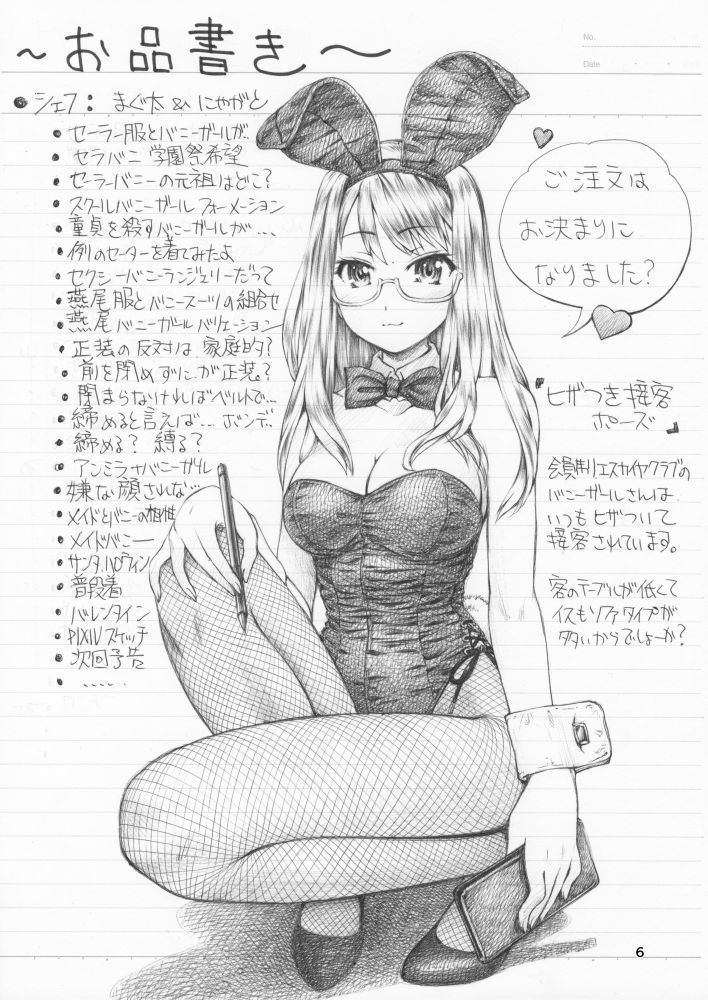 ～お品書き～
No.
Date
シェフ： まぐ太 & にゃがと
セーラー服とバニーガールが..
セラバニ 学園祭希望
セーラーバニーの元祖はどこ？
スクールバニーガールフォーメーション
童貞を殺すバニーガールが...
例のセーターを着てみたよ
セクシーバニーランジェリーだって
燕尾服とバニースーツの組合せ
燕尾バニーガールバリエーション
正装の反対は 家庭的？
前を閉めずにが正装？
閉まらなければベルトで...
締めると言えば... ボンデ..
締める？ 縛る？
アンミラ+バニーガール
嫌な顔されな...
メイドとバニーの相性
メイドバニー
サンタ、ハロウィン
普段着
バレンタイン
PIXIVスケッチ
次回予告
.....
ご注文は
お決まりに
なりました？
『ヒザつき接客
ポーズ』
会員制エスカイヤクラブの
バニーガールさんは
いつもヒザついて
接客されています。
客のテーブルが低くて
イスもソファタイプが
多いからでしょーか？
6